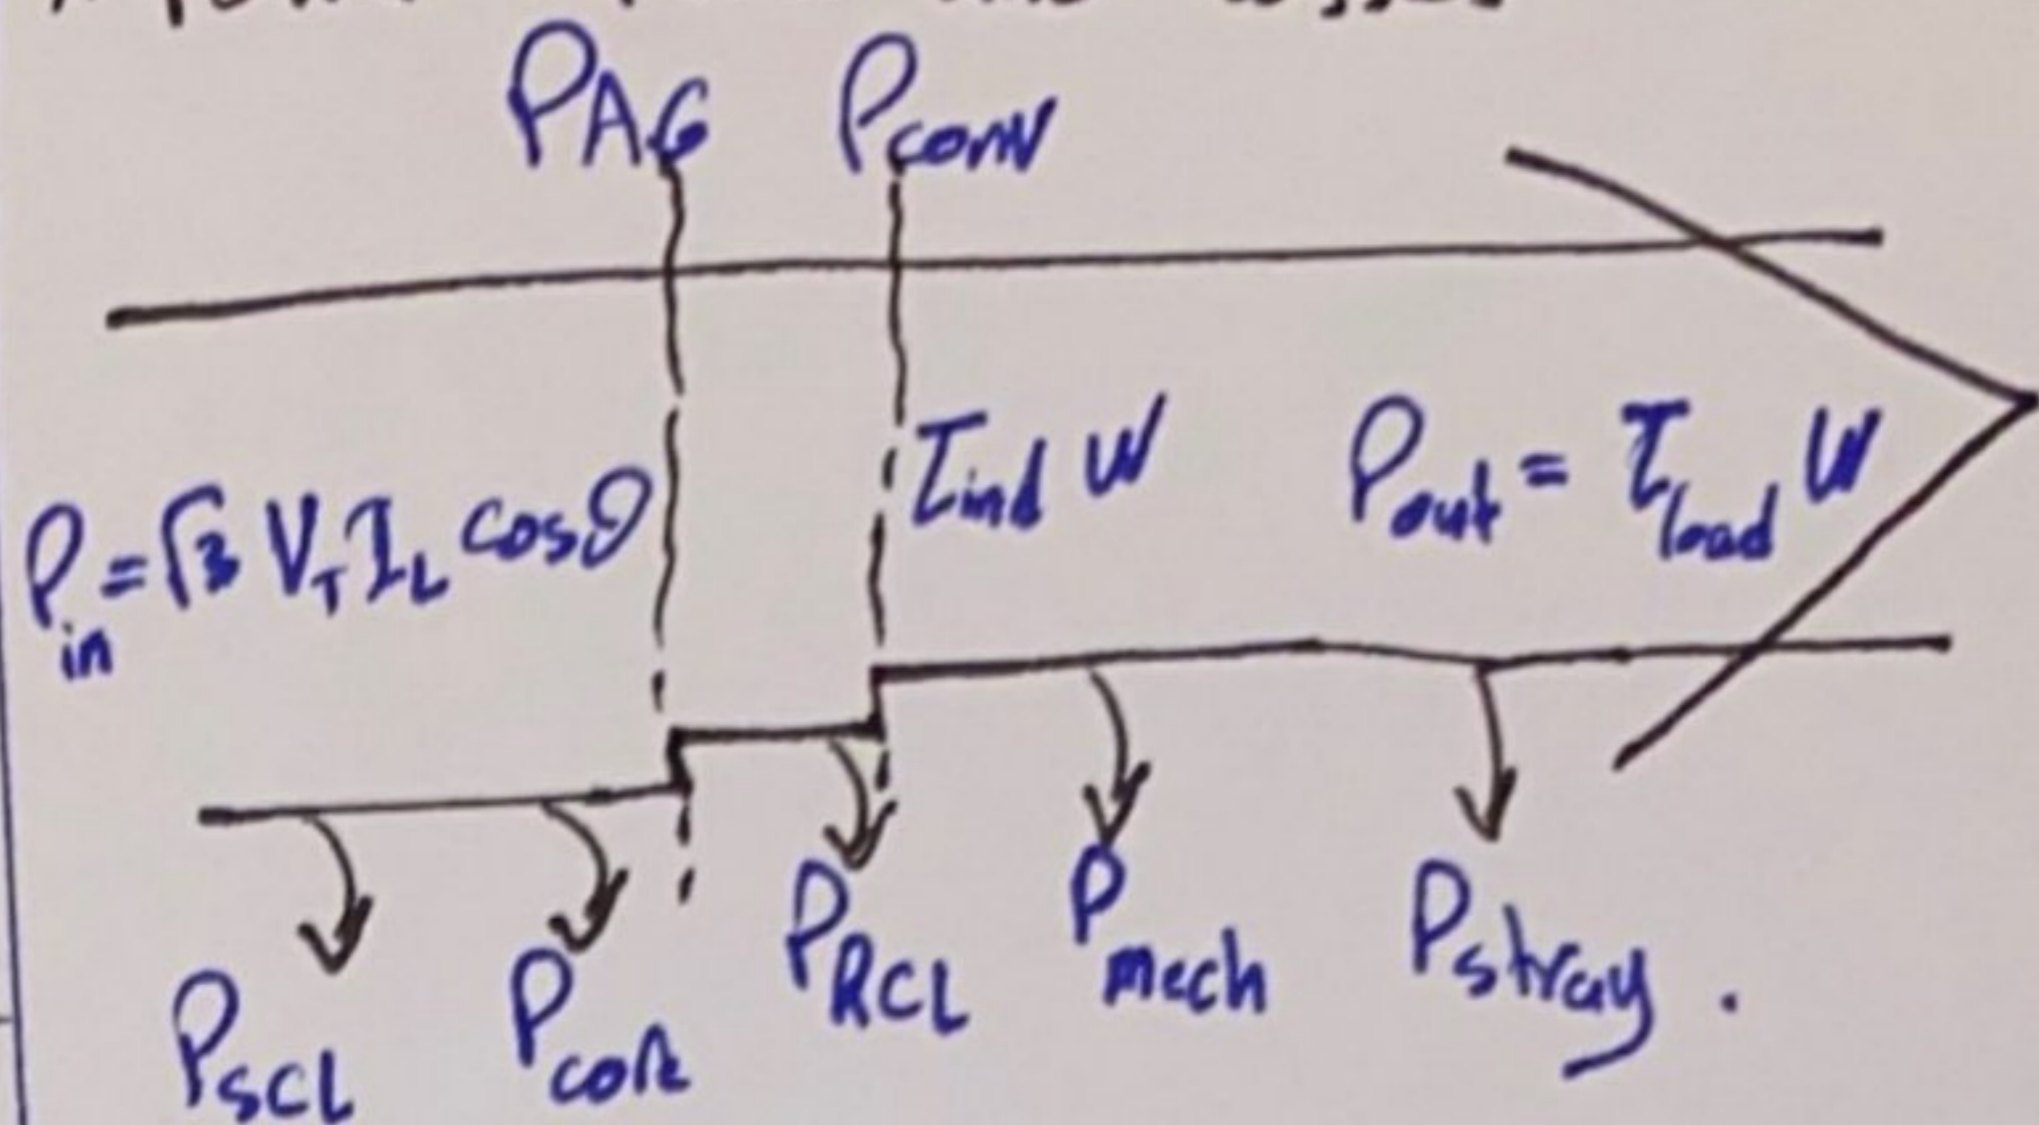 PAG Pconv
Pin = √3 VT IL cosθ
τind W
Pout = τload W
PSCL
Pcore
PRCL
Pmech
Pstray .